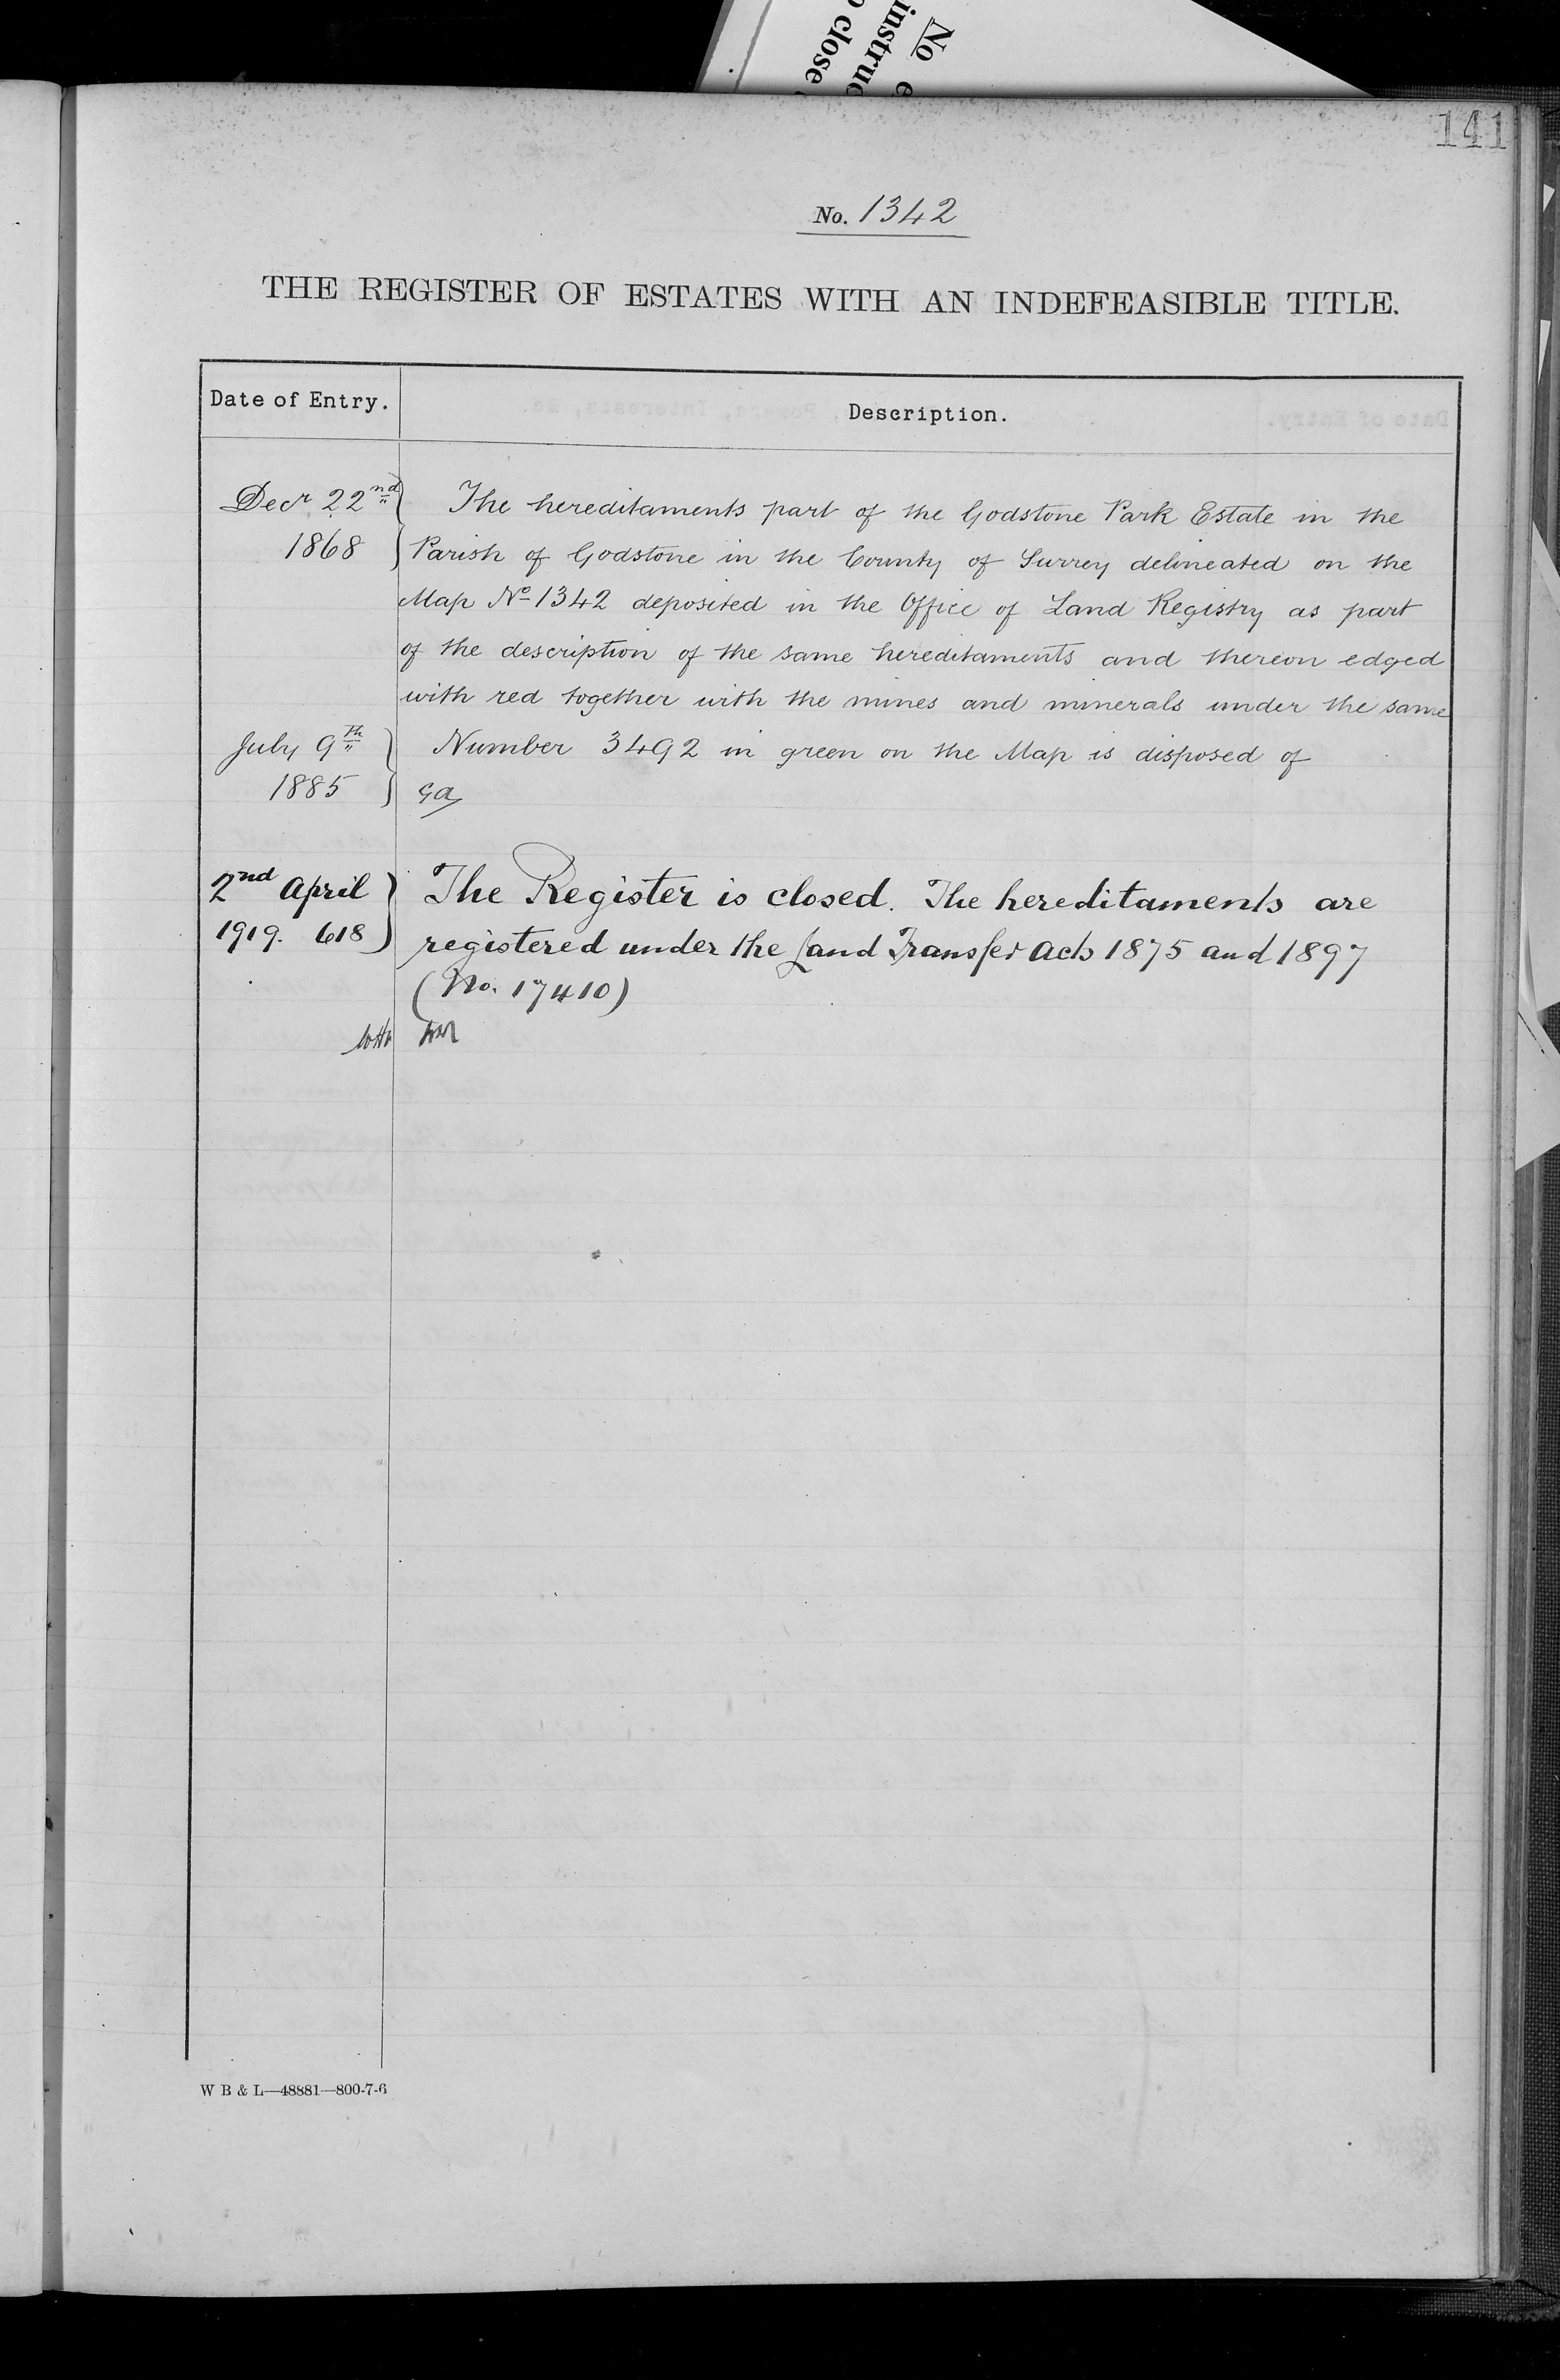 No e
instruc
o close
141
No. 1342
THE REGISTER OF ESTATES WITH AN INDEFEASIBLE TITLE.
Date of Entry.
Description.
Decr 22nd
1868
The hereditaments part of the Godstone Park Estate in the
Parish of Godstone in the County of Surrey delineated on the
Map No 1342 deposited in the Office of Land Registry as part
of the description of the same hereditaments and thereon edged
with red together with the mines and minerals under the same
July 9th
1885
Number 3492 in green on the Map is disposed of
Ga
2nd April
1919. 618
The Register is closed. The hereditaments are
registered under the Land Transfer Acts 1875 and 1897
(No. 17410)
W B & L—48881—800-7-6